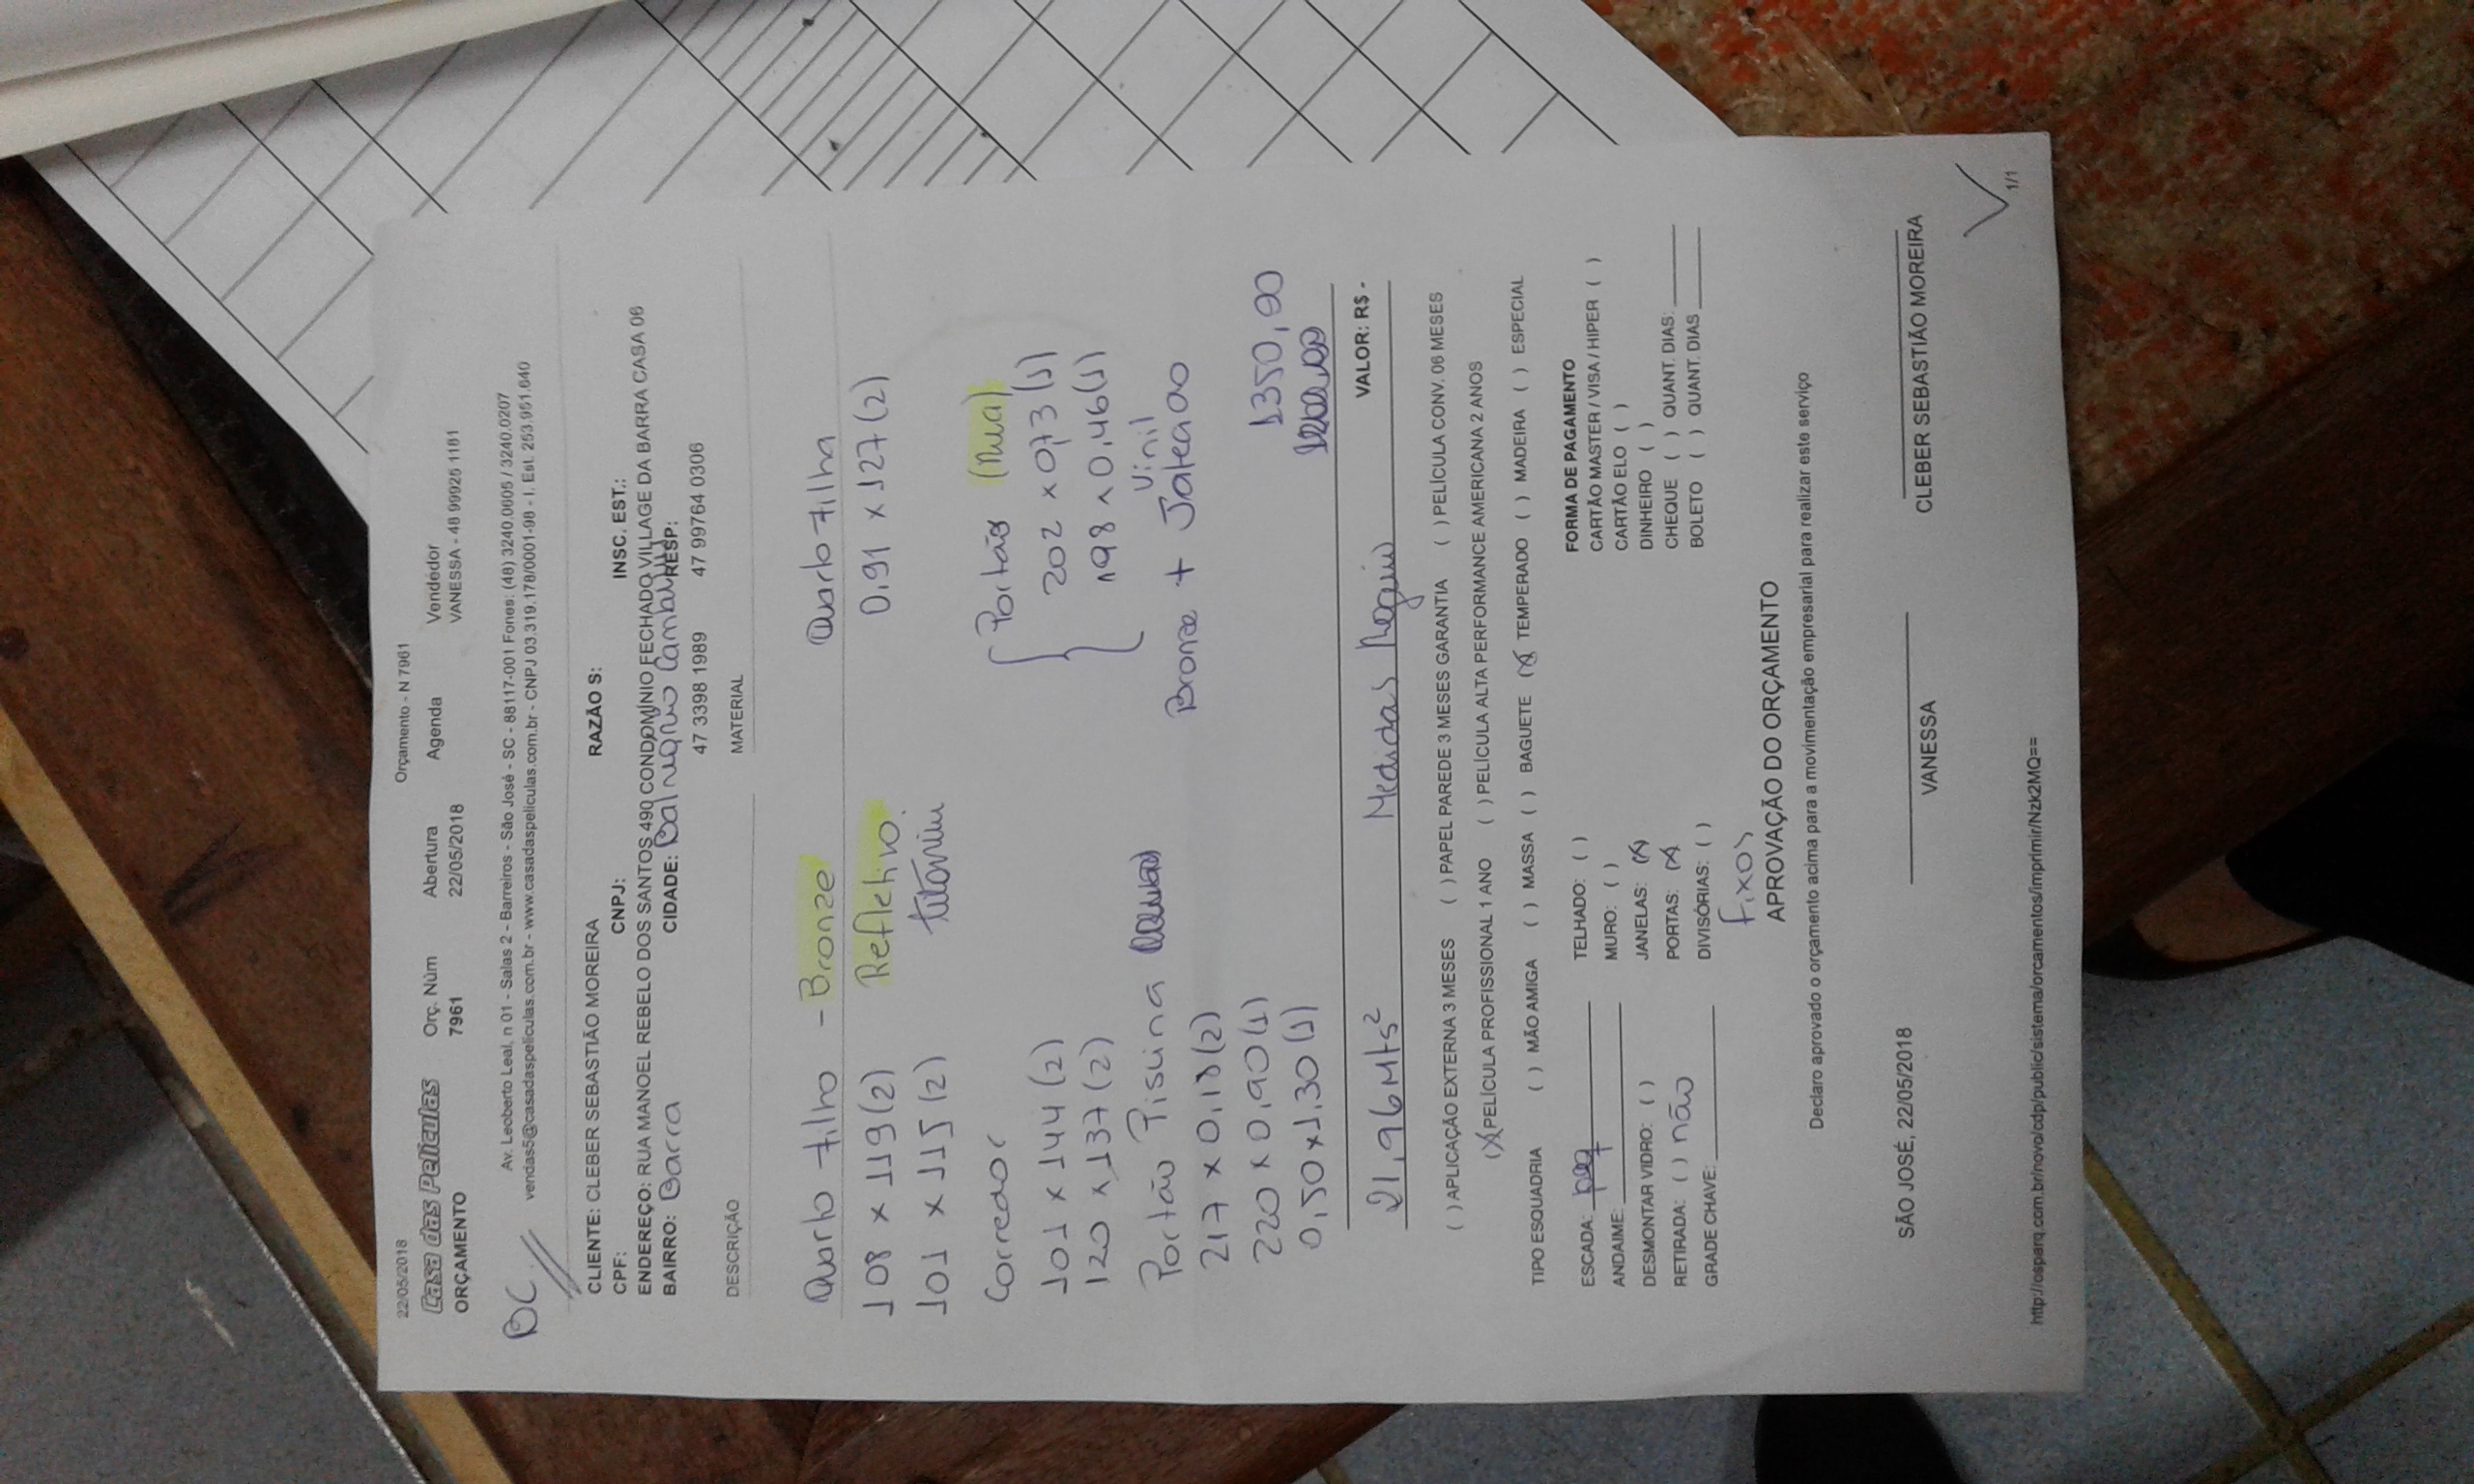 22/05/2018 Orçamento - N 7961
Casa das Películas Orç. Núm Abertura Agenda Vendedor
ORÇAMENTO 7961 22/05/2018 VANESSA - 48 99925 1161
Av. Leoberto Leal, n 01 - Salas 2 - Barreiros - São José - SC - 88117-001 Fones: (48) 3240.0005 / 3240.0207
vendas5@casadaspeliculas.com.br - www.casadaspeliculas.com.br - CNPJ 03.319.178/0001-98 - I. Est. 253.951.640
BC
CLIENTE: CLEBER SEBASTIÃO MOREIRA RAZÃO S:
CPF: CNPJ: INSC. EST.:
ENDEREÇO: RUA MANOEL REBELO DOS SANTOS 490 CONDOMÍNIO FECHADO VILLAGE DA BARRA CASA 06
BAIRRO: Barra CIDADE: Balneario Camboriú RESP:
47 3398 1989 47 99764 0306
DESCRIÇÃO MATERIAL
Quarto filho - Bronze Quarto filha
108 x 119 (2) Refletivo. 0,91 x 127 (2)
101 x 115 (2) titanium
Corredor Portão (Rua)
101 x 144 (2) 202 x 0,73 (1)
120 x 137 (2) 198 x 0,46 (1)
Portão Piscina Vinil
217 x 0,18 (2) Bronze + Jateado
220 x 0,90 (1)
0,50 x 1,30 (1) 1350,90
VALOR: R$ -
21,96 Mts² Medidas Regiw
( ) APLICAÇÃO EXTERNA 3 MESES ( ) PAPEL PAREDE 3 MESES GARANTIA ( ) PELÍCULA CONV. 06 MESES
(X) PELÍCULA PROFISSIONAL 1 ANO ( ) PELÍCULA ALTA PERFORMANCE AMERICANA 2 ANOS
TIPO ESQUADRIA ( ) MÃO AMIGA ( ) MASSA ( ) BAGUETE (X) TEMPERADO ( ) MADEIRA ( ) ESPECIAL
ESCADA: TELHADO: ( ) FORMA DE PAGAMENTO
ANDAIME: MURO: ( ) CARTÃO MASTER / VISA / HIPER ( )
DESMONTAR VIDRO: ( ) JANELAS: (X) CARTÃO ELO ( )
RETIRADA: ( ) não PORTAS: (X) DINHEIRO ( )
GRADE CHAVE: DIVISÓRIAS: ( ) CHEQUE ( ) QUANT. DIAS:
BOLETO ( ) QUANT. DIAS
Fixos
APROVAÇÃO DO ORÇAMENTO
Declaro aprovado o orçamento acima para a movimentação empresarial para realizar este serviço
SÃO JOSÉ, 22/05/2018 VANESSA CLEBER SEBASTIÃO MOREIRA
http://osparq.com.br/novo/cdp/public/sistema/orcamentos/imprimir/Nzk2MQ== 1/1